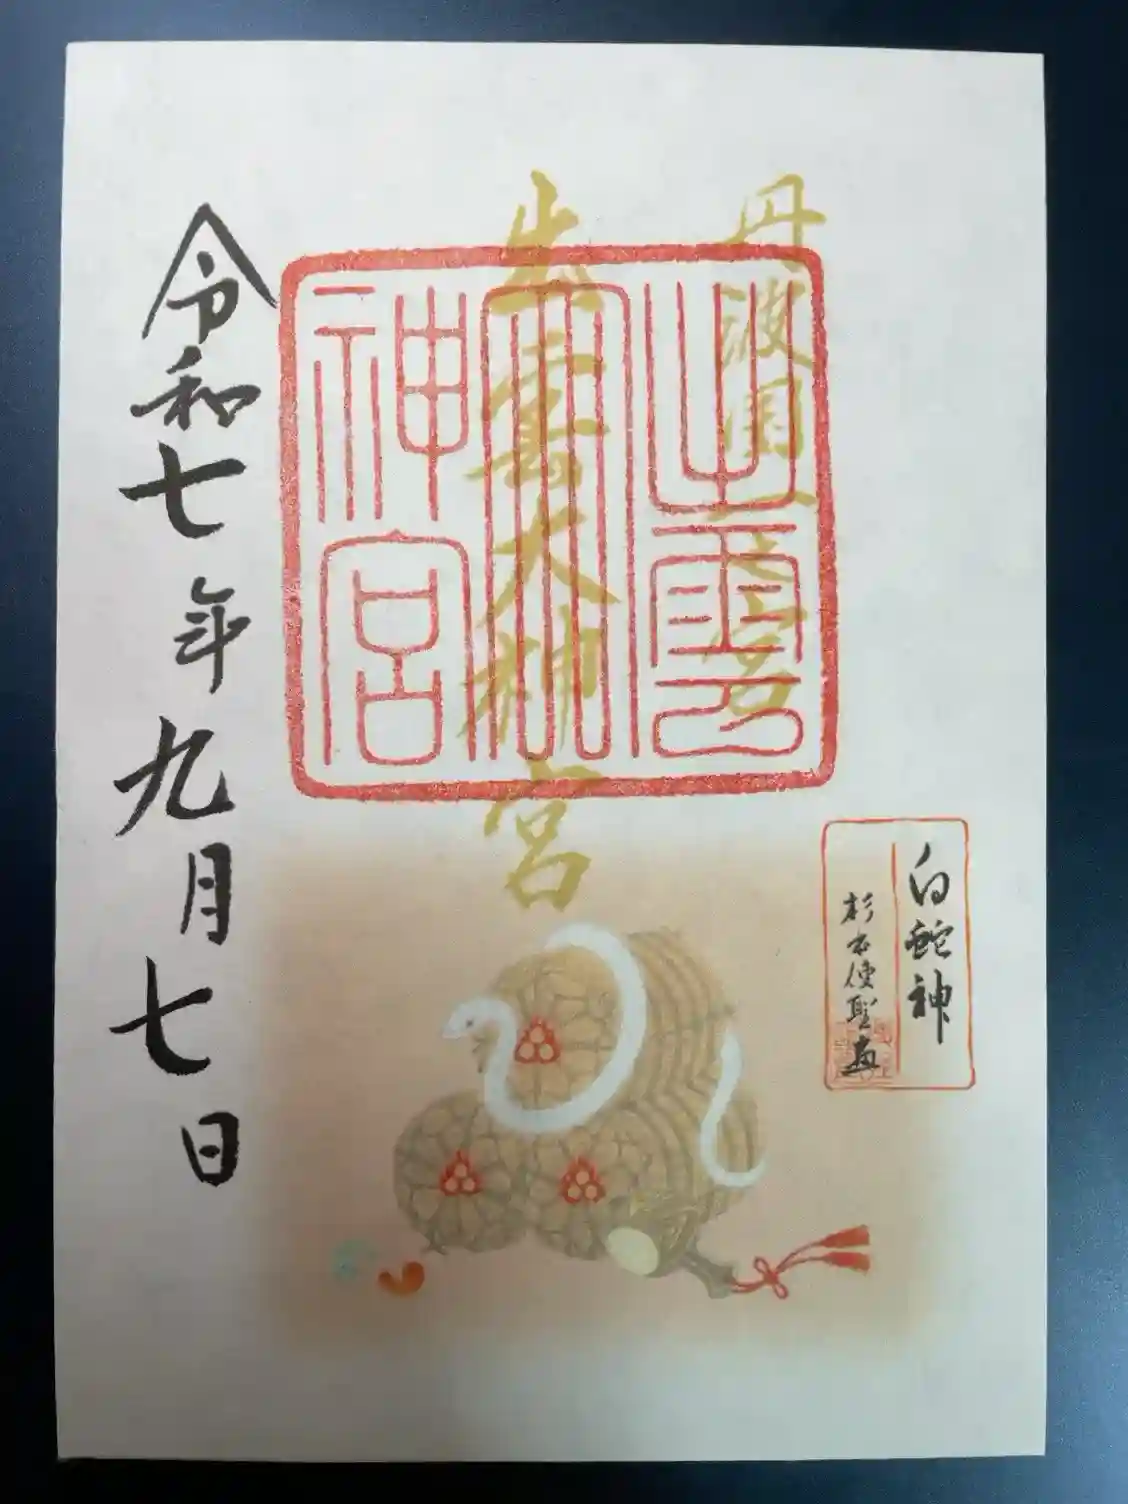 丹波國一之宮
出雲大神宮
出雲
大
神宮
白蛇神
杉本使聖画
令和七年九月七日